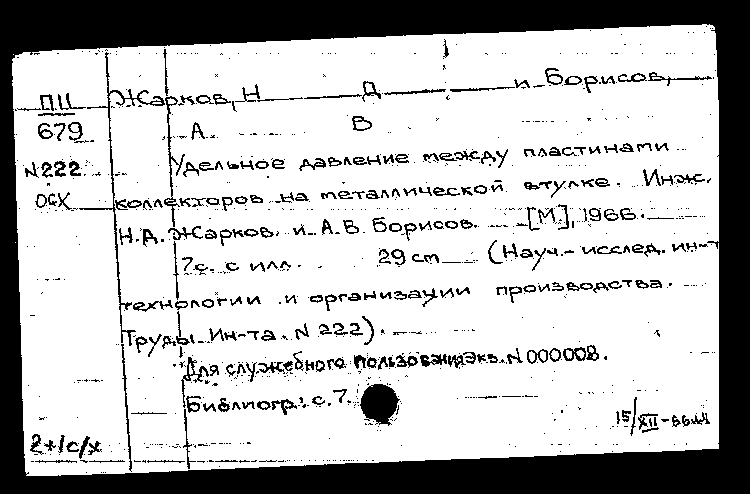 П11 Жарков, Н Д и Борисов,
679 А В
N222 Удельное давление между пластинами
ОСХ коллекторов на металлической втулке. Инж.
Н.Д. Жарков и А.В. Борисов. [М.], 1966.
7с. с илл. 29 cm (Науч.-исслед. ин-т
технологии и организации производства.
Труды Ин-та. N 222).
Для служебного пользования Экз. N 000008.
Библиогр: с. 7.
15/XII-66
2+1с/х